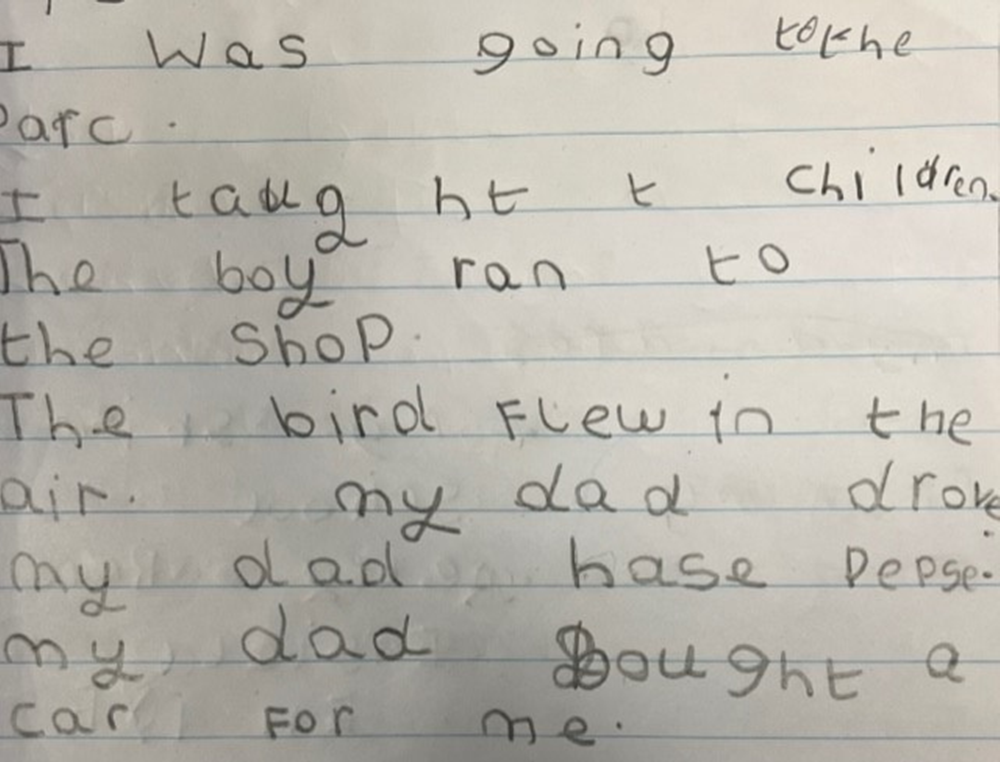 I Was going to the
Parc.
I taught t children.
The boy ran to
the ShoP.
The bird Flew in the
air. my dad drove.
my dad hase Pepse.
my dad bought a
car For me.